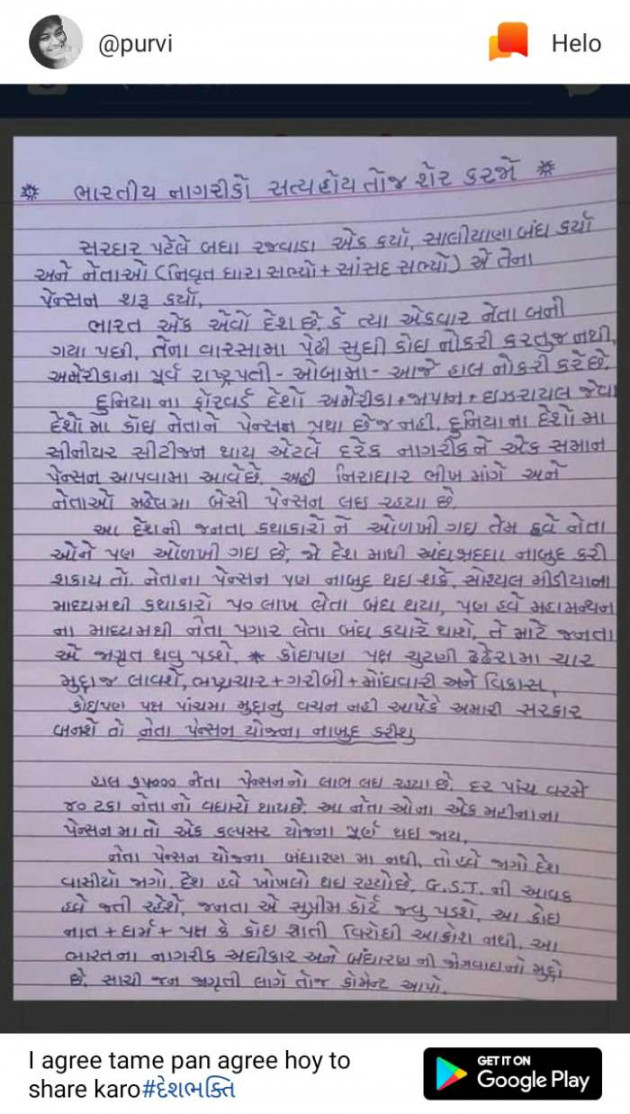 @purvi
Helo
* ભારતીય નાગરીકો સત્યહોય તોજ શેર કરજો *
સરદાર પટેલે બધા રજવાડા એક કર્યા, સાલીયાણા બંધ કર્યા
અને નેતાઓ (નિવૃત ધારાસભ્યો + સાંસદ સભ્યો) એ તેના
પેન્સન શરૂ કર્યા,
ભારત એક એવો દેશ છે. કે ત્યા એકવાર નેતા બની
ગયા પછી, તેના વારસામા પેઢી સુધી કોઇ નોકરી કરતુજ નથી,
અમેરીકાના પૂર્વ રાષ્ટ્રપતી - ઓબામા - આજે હાલ નોકરી કરે છે.
દુનિયા ના ફોરવર્ડ દેશો અમેરીકા + જાપાન + ઇઝરાયલ જેવા
દેશો મા કોઇ નેતાને પેન્સન પ્રથા છેજ નહી. દુનિયાના દેશો મા
સીનીયર સીટીજન થાય એટલે દરેક નાગરીક ને એક સમાન
પેન્સન આપવામા આવેછે. અહી નિરાધાર ભીખ માંગે અને
નેતાઓ મહેલમા બેસી પેન્સન લઇ રહયા છે.
આ દેશની જનતા કથાકારો ને ઓળખી ગઇ તેમ હવે નેતા
ઓને પણ ઓળખી ગઇ છે, જો દેશ માથી અંધશ્રદ્ધા નાબુદ કરી
શકાય તો. નેતાના પેન્સન પણ નાબુદ થઇ શકે. સોશ્યલ મીડીયાના
માધ્યમથી કથાકારો ૫૦ લાખ લેતા બંધ થયા, પણ હવે મહામન્થન
ના માધ્યમથી નેતા પગાર લેતા બંધ કયારે થાશે, તે માટે જનતા
એ જાગૃત થવુ પડશે. * કોઇપણ પક્ષ ચુટણી ઢંઢેરામા ચાર
મુદ્દાજ લાવશે, ભ્રષ્ટાચાર + ગરીબી + મોંઘવારી અને વિકાસ,
કોઇપણ પક્ષ પાંચમા મુદ્દાનુ વચન નહી આપેકે અમારી સરકાર
બનશે તો નેતા પેન્સન યોજના નાબુદ કરીશુ
હાલ નેતા પેન્સનનો લાભ લઇ રહયા છે. દર પાંચ વરસે
૪૦ ટકા નેતા નો વધારો થાયછે. આ નેતા ઓના એક મહીનાના
પેન્સન મા તો એક કલ્પસર યોજના પૂર્ણ થઇ જાય,
નેતા પેન્સન યોજના બંધારણ મા નથી, તો હવે જાગો દેશ
વાસીયો જાગો. દેશ હવે ખોખલો થઇ રહયોછે. G.S.T. ની આવક
હવે જતી રહેશે, જનતા એ સુપ્રીમ કોર્ટ જવુ પડશે, આ કોઇ
નાત + ધર્મ + પક્ષ કે કોઇ જ્ઞાતી વિરોધી આક્રોશ નથી. આ
ભારતના નાગરીક અધીકાર અને બંધારણ ની જોગવાઇનો મુદ્દો
છે. સાચી જન જાગૃતી લાગે તોજ કોમેન્ટ આપો.
I agree tame pan agree hoy to
share karo#દેશભક્તિ
GET IT ON
Google Play